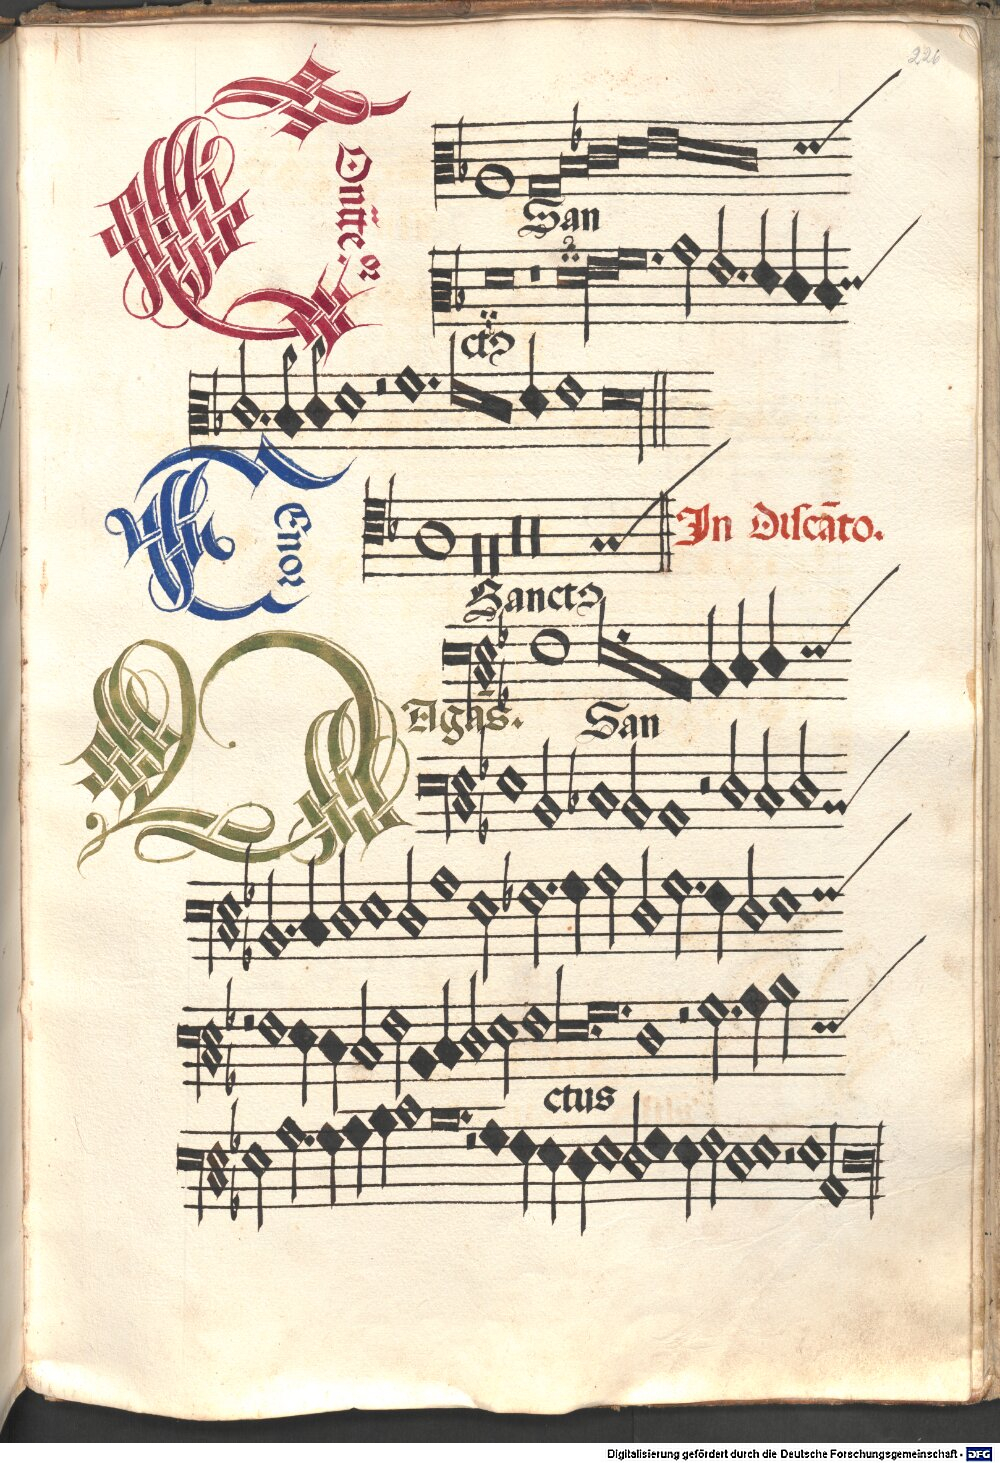 226
Contratenor
San
ctꝰ
Tenor
In Discāto.
Sanctꝰ
Vagās.
San
ctus
Digitalisierung gefördert durch die Deutsche Forschungsgemeinschaft - DFG